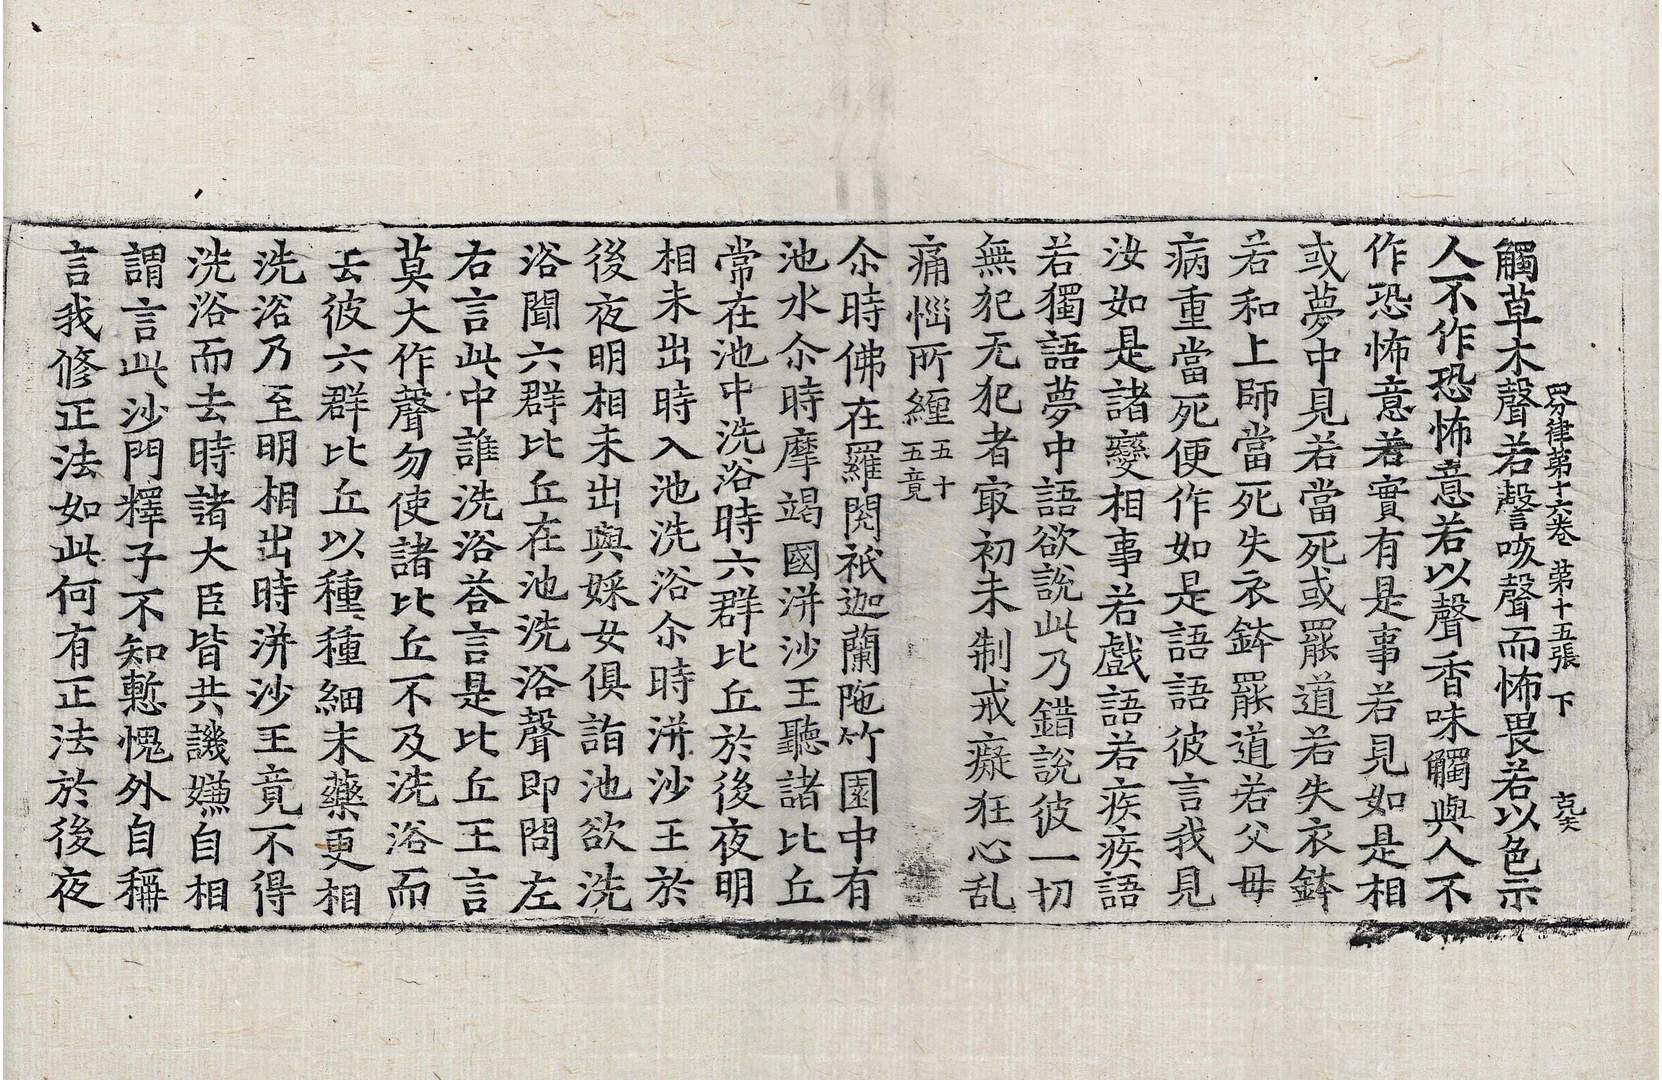 四分律第十六卷 第十五張 下
觸草木聲若謦咳聲而怖畏若以色示
人不作恐怖意若以聲香味觸與人不
作恐怖意若實有是事若見如是相
或夢中見若當死或罷道若失衣鉢
若和上師當死失衣鉢罷道若父母
病重當死便作如是語語彼言我見
汝如是諸變相事若戲語若疾疾語
若獨語夢中語欲說此乃錯說彼一切
無犯无犯者㝡初未制戒癡狂心乱
痛惱所纏 五十五竟
尒時佛在羅閱祇迦蘭陁竹園中有
池水尒時摩竭國洴沙王聽諸比丘
常在池中洗浴時六群比丘於後夜明
相未出時入池洗浴尒時洴沙王於
後夜明相未出與婇女俱詣池欲洗
浴聞六群比丘在池洗浴聲即問左
右言此中誰洗浴荅言是比丘王言
莫大作聲勿使諸比丘不及洗浴而
去彼六群比丘以種種細末藥更相
洗浴乃至明相出時洴沙王竟不得
洗浴而去時諸大臣皆共譏嫌自相
謂言此沙門釋子不知慙愧外自稱
言我修正法如此何有正法於後夜